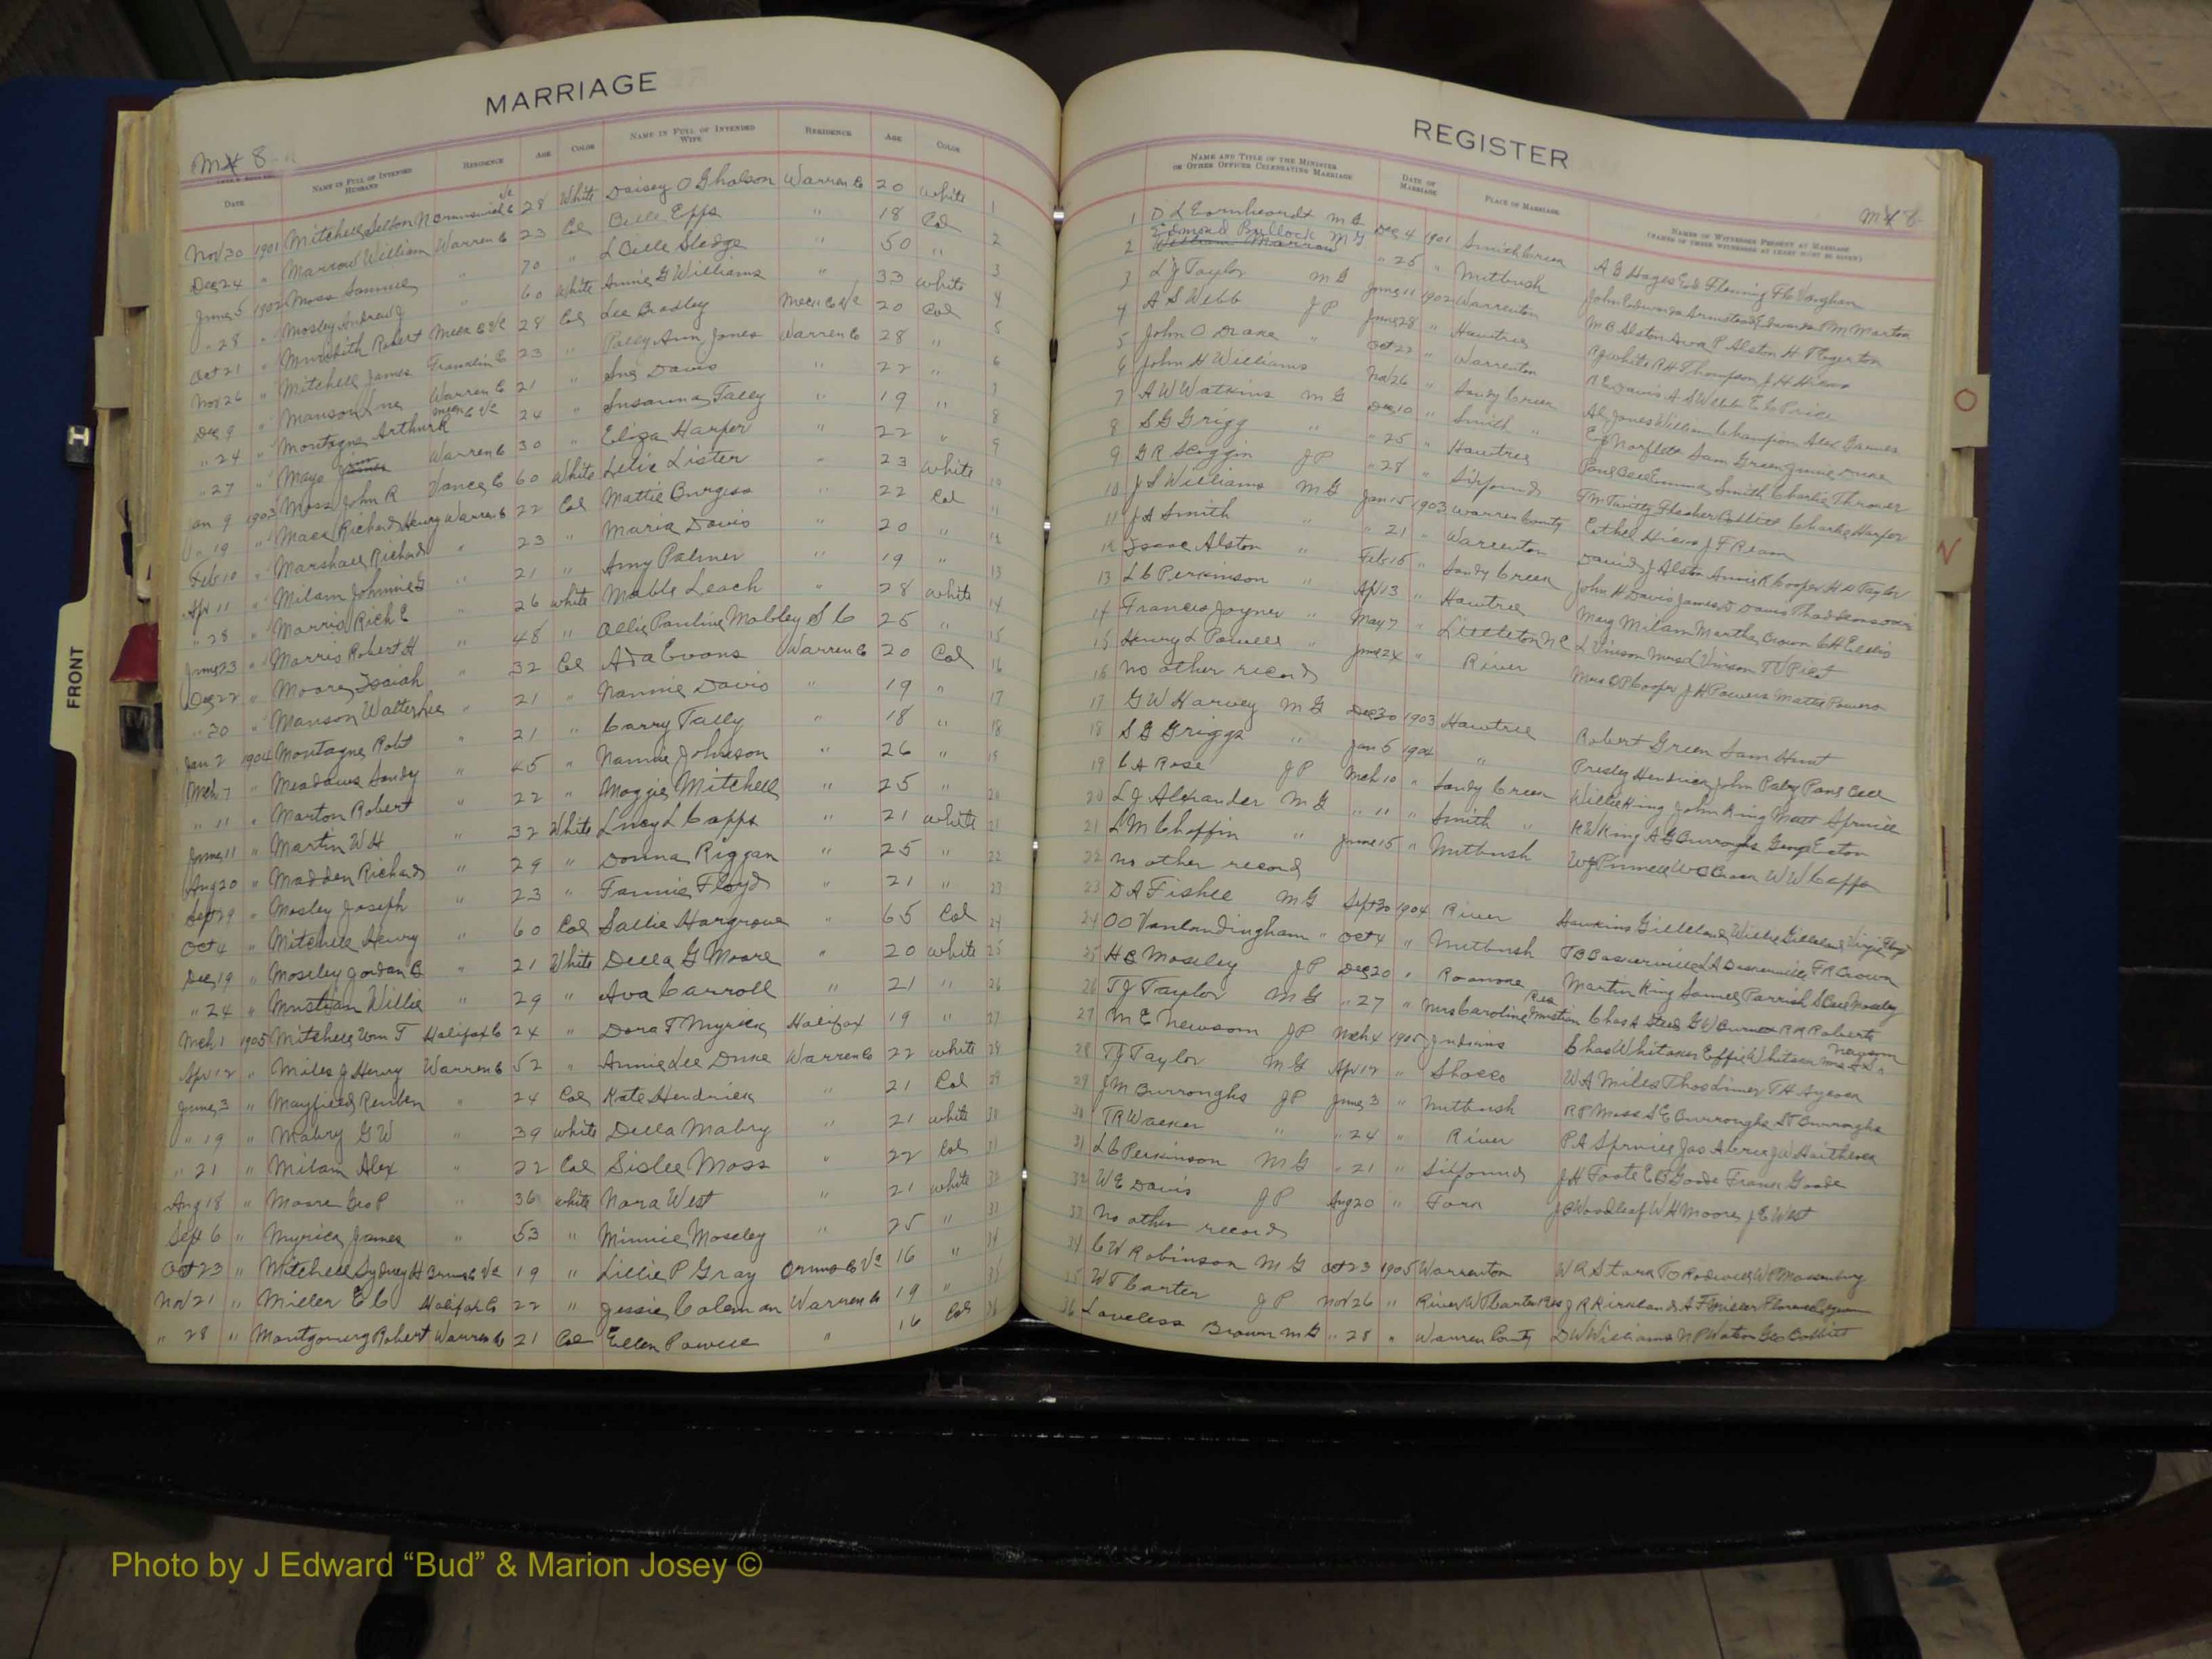 MARRIAGE
M 8
DATE NAME IN FULL OF INTENDED HUSBAND RESIDENCE AGE COLOR NAME IN FULL OF INTENDED WIFE RESIDENCE AGE COLOR
Nov 20 1901 Mitchell N Brunswick C Va 28 White Daisey O Gholson Warren C 20 white 1
Dec 24 " Marrow William Warren C 23 Col Belle Epps " 18 Col 2
June 5 1902 Moss Samuel " 70 " L Belle Sledge " 50 " 3
" 28 " Mosley Andrew J " 60 White Annie G Williams " 33 white 4
Oct 21 " Meredith Robert Meck C Va 28 Col Lee Bradley Meck C Va 20 Col 5
Nov 26 " Mitchell James Franklin C 23 " Patsy Ann Jones Warren C 28 " 6
Dec 9 " Manson Warren C 21 " Sue Davis " 22 " 7
" 24 " Montague Arthur R Meck C Va 24 " Susanna Tally " 19 " 8
" 27 " Mayo Jim Warren C 30 " Eliza Harper " 22 " 9
an 9 1903 Moss John R Vance C 60 White Lelie Lister " 23 white 10
" 19 " Mack Richard Henry Warren C 22 Col Mattie Burgess " 22 Col 11
Feb 10 " Marshall Richard " 23 " Maria Davis " 20 " 12
Apr 11 " Milam Johnnie G " 21 " Amy Palmer " 19 " 13
" 28 " Morris Rich E " 26 white Mable Leach " 28 white 14
June 23 " Morris Robert H " 48 " Ollie Pauline Mobley S C 25 " 15
Dec 22 " Moore Isaiah " 32 Col Ada Evans Warren C 20 Col 16
" 30 " Manson Walter Lee " 21 " Nannie Davis " 19 " 17
Jan 2 1904 Montague Robt " 21 " Carry Tally " 18 " 18
Mch 7 " Meadows Sandy " 45 " Nannie Johnson " 26 " 19
" 11 " Marton Robert " 22 " Maggie Mitchell " 25 " 20
June 11 " Martin W H " 32 White Lucy L Capps " 21 white 21
Aug 20 " Madden Richard " 29 " Donna Riggan " 25 " 22
Sept 29 " Mosley Joseph " 23 " Fannie Floyd " 21 " 23
Oct 4 " Mitchell Henry " 60 Col Sallie Hargrove " 65 Col 24
Dec 19 " Moseley Jordan B " 21 White Della G Moore " 20 white 25
" 24 " Mustian Willie " 29 " Ava Carroll " 21 " 26
Mch 1 1905 Mitchell Wm T Halifax C 24 " Dora F Myrick Halifax 19 " 27
Apr 12 " Miles J Henry Warren C 52 " Annie Lee Duke Warren C 22 white 28
June 3 " Mayfield Reuben " 24 Col Kate Hendrick " 21 Col 29
" 19 " Mabry G W " 39 white Della Mabry " 21 white 30
" 21 " Milam Alex " 22 Col Sislee Moss " 22 Col 31
Aug 18 " Moore Geo P " 36 white Nora West " 21 white 32
Sept 6 " Myrick James " 53 " Minnie Moseley " 25 " 33
Oct 23 " Mitchell Sydney H Bruns C Va 19 " Lillie P Gray Bruns C Va 16 " 34
Nov 21 " Miller E C Halifax C 22 " Jessie Coleman Warren C 19 " 35
" 28 " Montgomery Robert Warren C 21 Col Ellen Powell " 16 Col 36
REGISTER
M 8
NAME AND TITLE OF THE MINISTER OR OTHER OFFICER CELEBRATING MARRIAGE DATE OF MARRIAGE PLACE OF MARRIAGE NAMES OF WITNESSES PRESENT AT MARRIAGE
1 D L Earnheardt M G Dec 4 1901 Smith Creek A G Hayes Ed Fleming F C Vaughan
2 Edmond Bullock M G William Marrow " 25 " Nutbush John Edwards M Marton
3 L J Taylor M G June 11 1902 Warrenton M B Alston Ava P Alston H T Egerton
4 A S Webb J P June 28 " Hawtree P J White R H Thompson J H Hicks
5 John O Drake " Oct 22 " Warrenton R E Davis A S Webb E C Price
6 John H Williams Nov 26 " Sandy Creek Jones William Champion Alex Gaines
7 A W Watkins M G Dec 10 " Smith " Norfleet Sam Green
8 S G Grigg " " 25 " Hawtree Smith Charlie Thrower
9 G R Scoggin J P " 28 " Sixpound Charlie Harper
10 J S Williams M G Jan 15 1903 Warren County Ethel Hicks J F Ream
11 J A Smith " " 21 " Warrenton David J Alston Annie R Cooper H A Taylor
12 Isaac Alston " Feb 15 " Sandy Creek John H Davis James D Davis
13 L C Perkinson " Apr 13 " Hawtree Mary Milam Martha Brown C H Ellis
14 Francis Joyner " May 7 " Littleton N C L Vinson Mrs L Vinson
15 Henry L Powell " June 24 " River Mrs O P Cooper J H Powers Mattie Powers
16 no other record
17 G W Harvey M G Dec 30 1903 Hawtree Robert Green Sam Hunt
18 S G Griggs " Jan 5 1904 " Presley Hendrick John
19 C A Rose J P Mch 10 " Sandy Creek Willie King John King Matt Spruill
20 L J Alexander M G " 11 " Smith " R W King A G Burroughs
21 L M Chaffin " June 15 " Nutbush W J Pinnell W W Capps
22 no other record
23 D A Fishel M G Sept 30 1904 River Hawkins Gilleland Willie Gilleland Virgie Floyd
24 O O Vanlandingham " Oct 4 " Nutbush T B Baskerville L A Baskerville F R Brown
25 H B Moseley J P Dec 20 " Roanoke Martin King Samuel Parrish S Moseley
26 T J Taylor M G " 27 " Mrs Caroline Mustian Res Chas A Steed G W Burnett R R Roberts
27 M E Newsom J P Mch 4 1905 Judkins Chas Whitaker Effie Whitaker Newsom
28 T J Taylor M G Apr 12 " Shocco W A Miles Thos Limer T H Aycock
29 J M Burroughs J P June 3 " Nutbush R P Moss S E Burroughs S T Burroughs
30 T R Walker " " 24 " River P A Spruill Jas
31 L C Perkinson M G " 21 " Sixpound J H Foote E B Goode Frank Goode
32 W E Davis J P Aug 20 " Fork J B Woodleaf W H Moore J E West
33 no other record
34 C W Robinson M G Oct 23 1905 Warrenton W R Stark T O Rodwell
35 W T Carter J P Nov 26 " River W T Carter Res J R Kirkland A F Miller
36 Loveless Brown M G " 28 " Warren County D W Williams N P Watson Geo Bobbitt
FRONT
O
N
Photo by J Edward “Bud” & Marion Josey ©